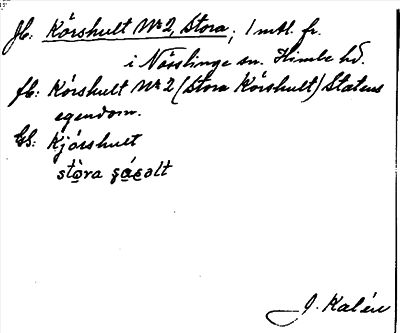 Jb: Körshult No 2, Stora; 1 mtl. fr.
i Nösslinge sn. Himle hd.
fb: Körshult No 2 (Stora Körshult) Statens
egendom.
GS: Kjörshult
stòra
J. Kalén